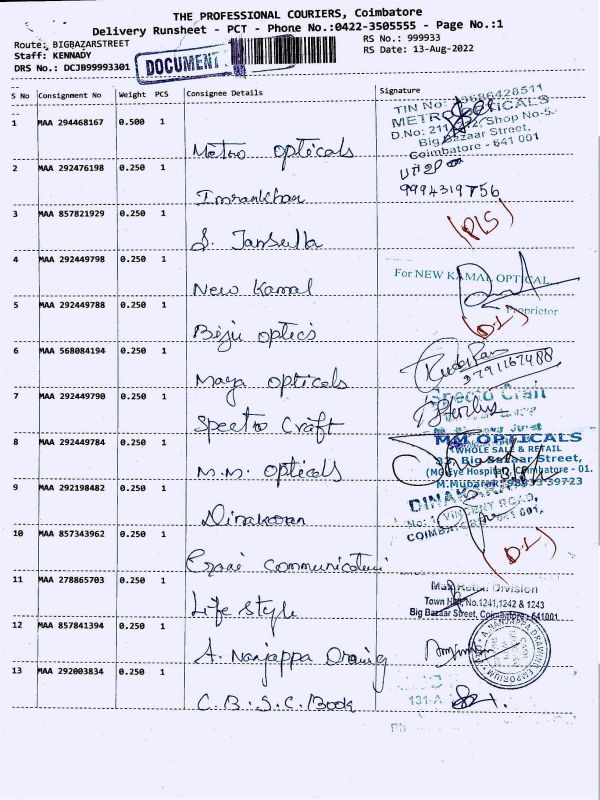 THE PROFESSIONAL COURIERS, Coimbatore
Delivery Runsheet - PCT - Phone No.:0422-3505555 - Page No.:1
Route: BIGBAZARSTREET RS No.: 999933
Staff: KENNADY RS Date: 13-Aug-2022
DRS No.: DCJB99993301 DOCUMENT
S No Consignment No Weight PCS Consignee Details Signature
TIN No: 9686428511
METRO OPTICALS
1 MAA 294468167 0.500 1 Metro opticals
D.No: 211 Shop No-5
Big Bazaar Street,
Coimbatore - 641 001
2 MAA 292476198 0.250 1 Imrankhan
9994319756
3 MAA 857821929 0.250 1 S.
4 MAA 292449798 0.250 1 New Kamal
For NEW KAMAL OPTICAL
Proprietor
5 MAA 292449788 0.250 1 Biju optics (D.L)
6 MAA 568084194 0.250 1 Maya opticals
7 MAA 292449790 0.250 1 Spectro Craft
8 MAA 292449784 0.250 1 M.M. opticals
MM OPTICALS
WHOLE SALE & RETAIL
Big Bazaar Street,
Eye Hospital, Coimbatore - 01.
9 MAA 292198482 0.250 1 Dinakaran
DINAKARAN
VINCENT ROAD,
COIMBATORE 641 001
10 MAA 857343962 0.250 1 (D.L)
11 MAA 278865703 0.250 1 Life style
Max Retail Division
Town Hall, No.1241,1242 & 1243
Big Bazaar Street, Coimbatore - 641001
12 MAA 857841394 0.250 1 A. Nanjappa
A.NANJAPPA DRAWING EMPORIUM
13 MAA 292003834 0.250 1 C.B.S.C. Book
131-A
Ph